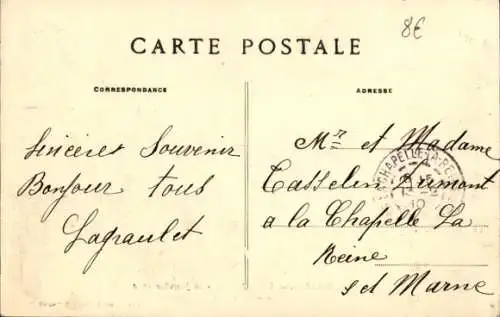 8€
CARTE POSTALE
CORRESPONDANCE
ADRESSE
Sincères Souvenir
Bonjour à tous
Lagraulet
Mr et Madame
Casselin Dumont
a la Chapelle La
Reine
s et Marne
CHAPELLE-LA-REINE